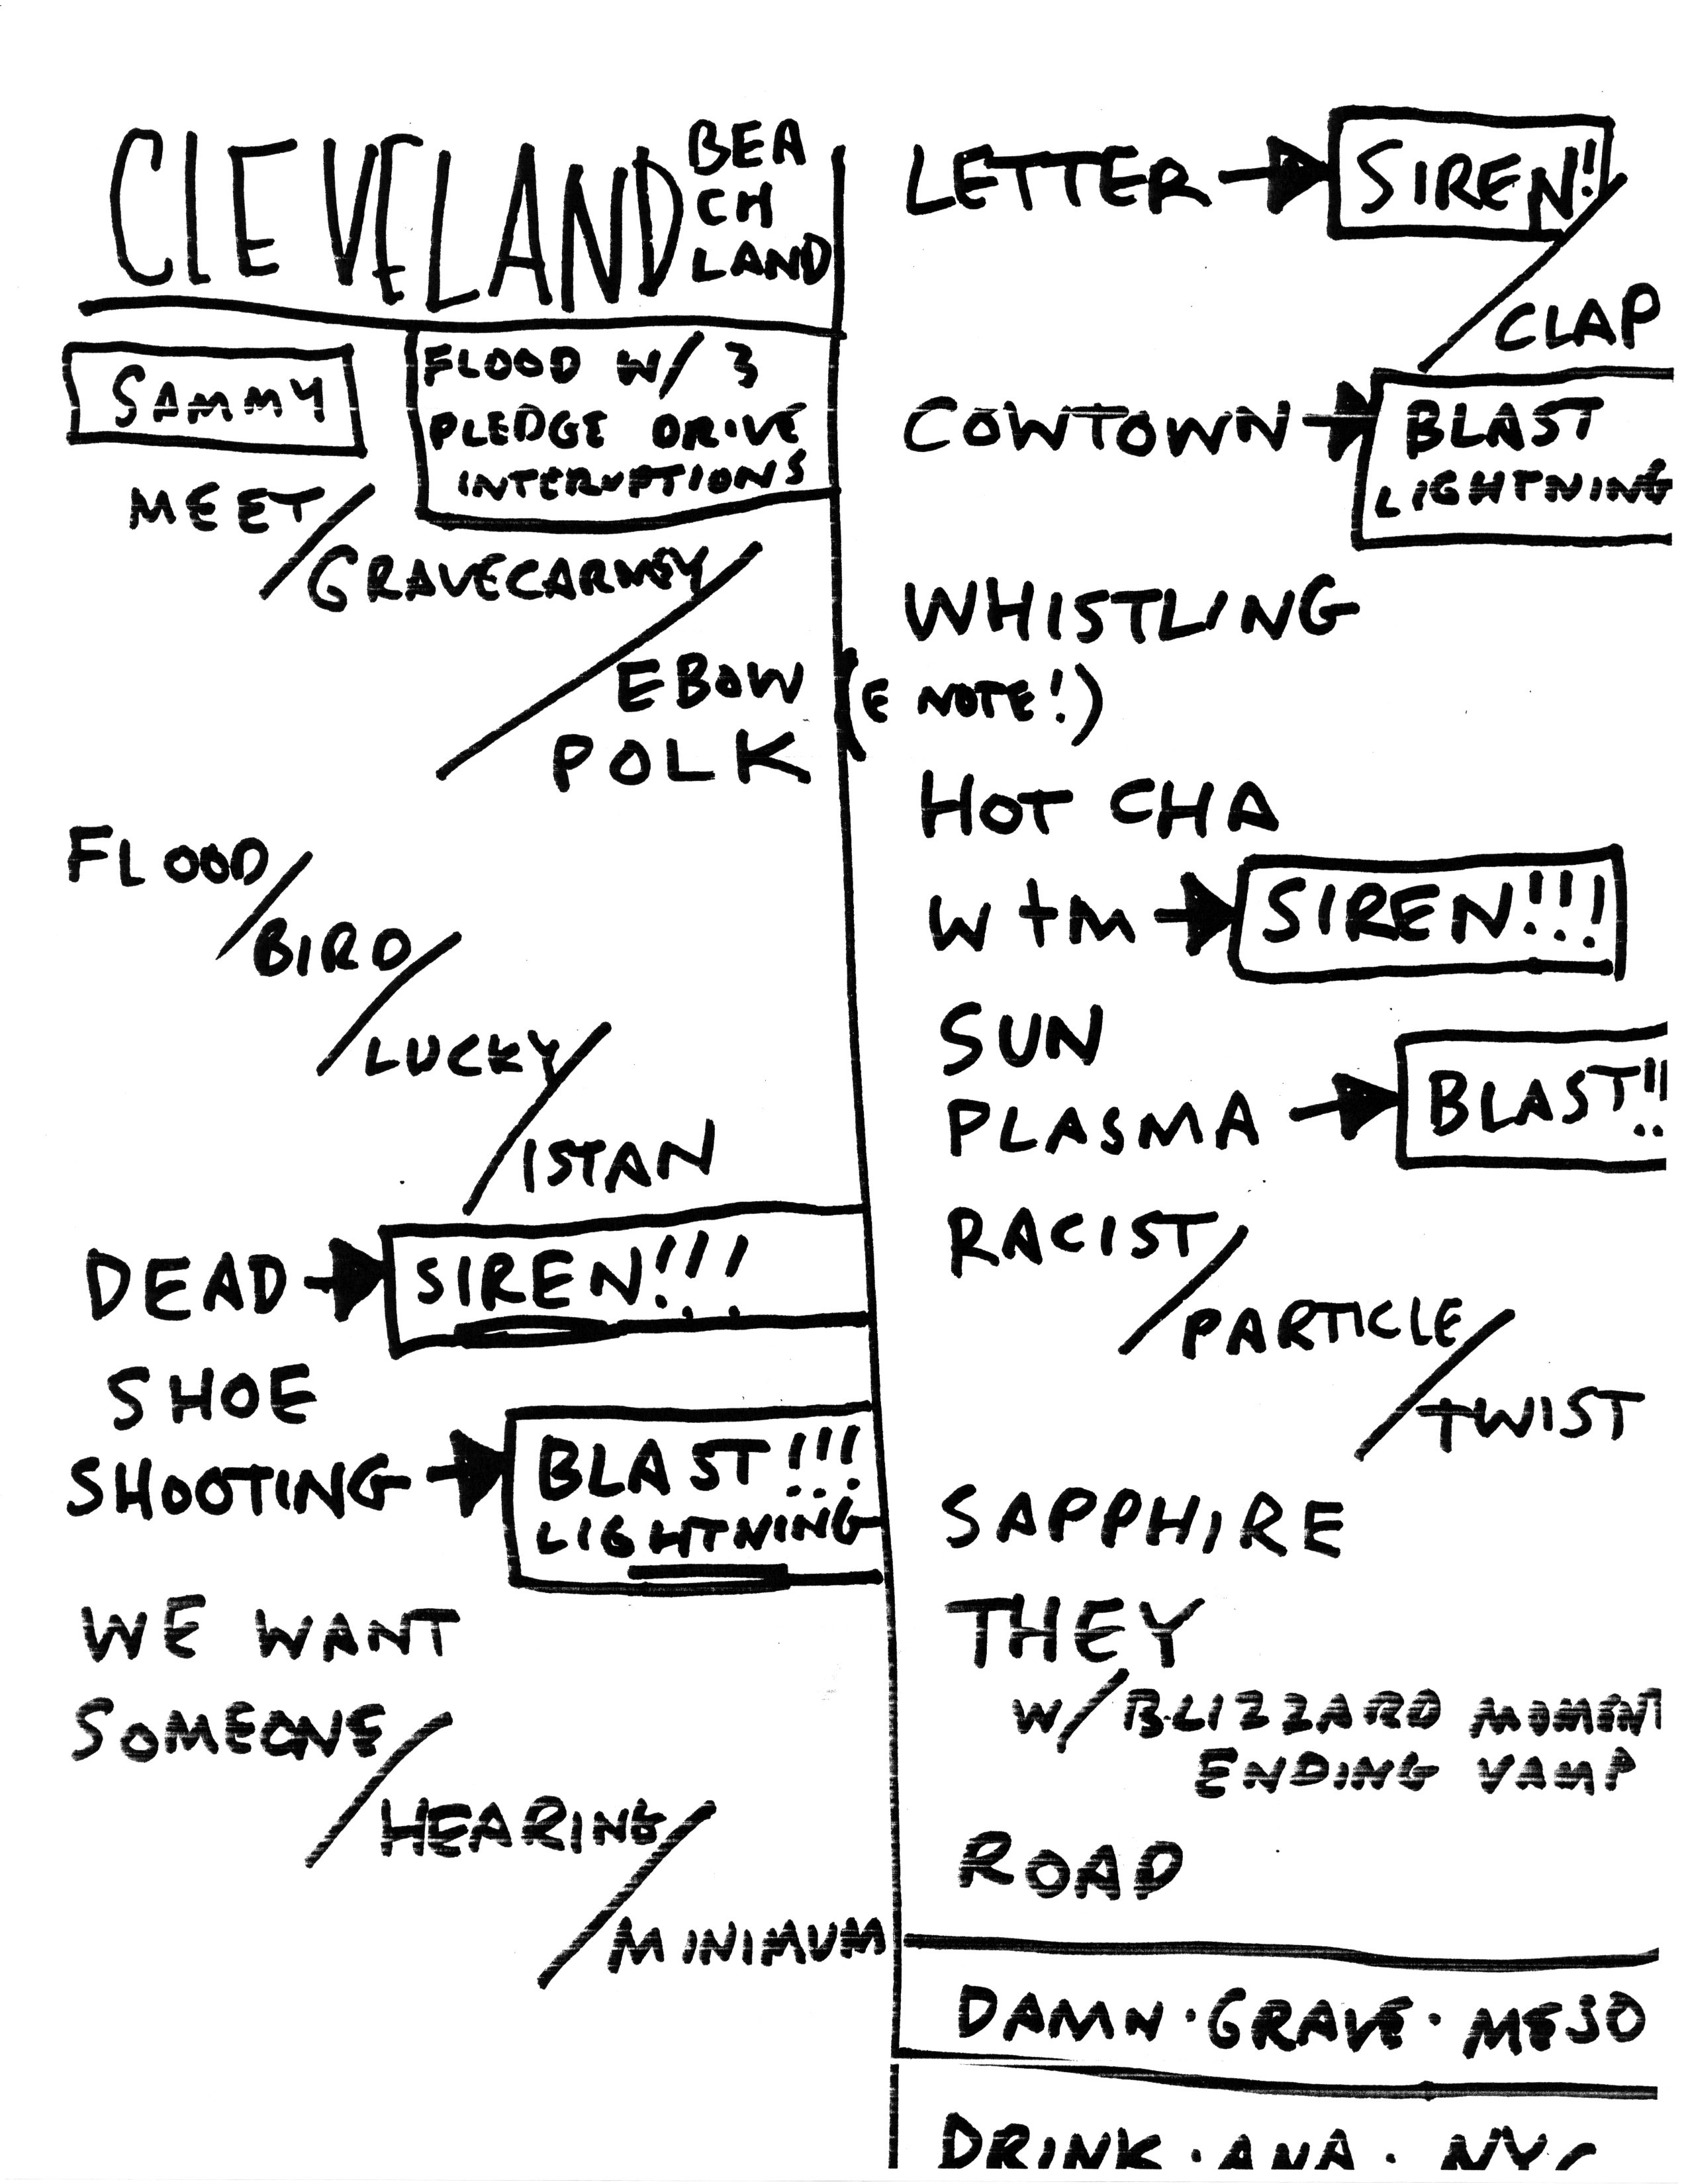 CLEVELAND
BEA
CH
LAND
SAMMY
FLOOD W/ 3
PLEDGE DRIVE
INTERUPTIONS
MEET/
GRAVECARNEY/
EBOW (E NOTE!)
POLK
FLOOD/
BIRD/
LUCKY/
ISTAN
DEAD → SIREN!!!
SHOE
SHOOTING → BLAST!!!
LIGHTNING
WE WANT
SOMEONE/
HEARING/
MINIMUM
LETTER → SIREN!
/CLAP
COWTOWN → BLAST
LIGHTNING
WHISTLING
HOT CHA
W+M → SIREN!!!
SUN
PLASMA → BLAST!!
RACIST/
PARTICLE/
TWIST
SAPPHIRE
THEY
W/BLIZZARD MOMENT
ENDING VAMP
ROAD
DAMN · GRAVE · MESO
DRINK · ANA · NYC